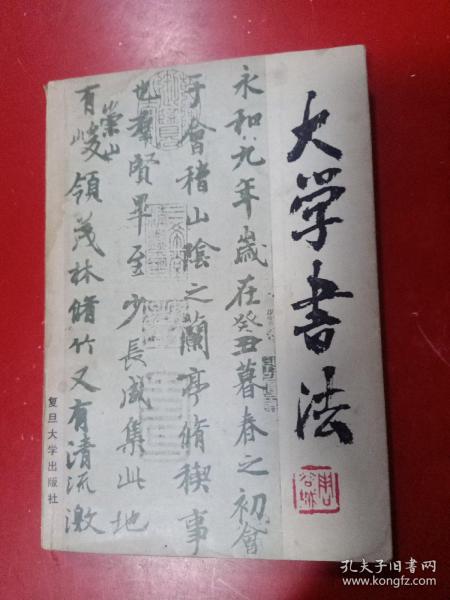 大学书法
永和九年歲在癸丑暮春之初會
于會稽山陰之蘭亭脩稧事
也羣賢畢至少長咸集此地
有崇山峻領茂林脩竹又有清流激
复旦大学出版社
周谷城
孔夫子旧书网
www.kongfz.com